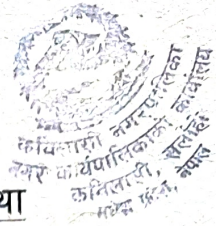 कविलासी नगरपालिका
नगर कार्यपालिकाको कार्यालय
कविलासी, सर्लाही
मधेश प्रदेश, नेपाल
था